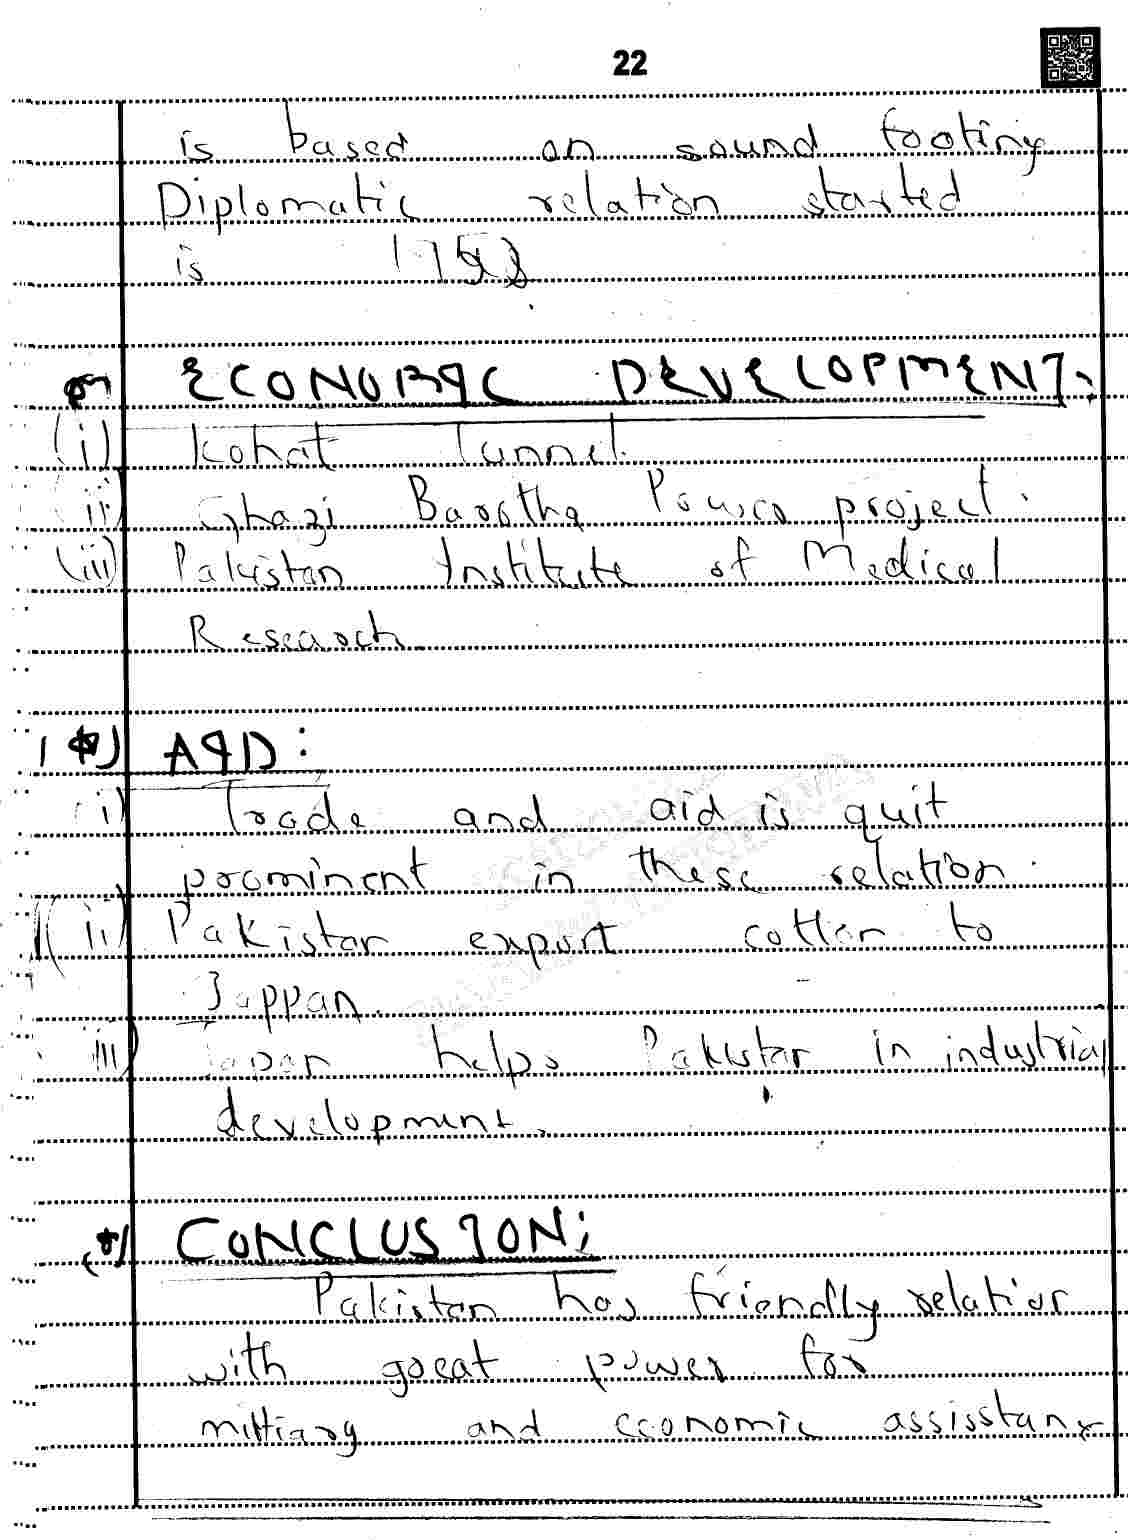 22
is based on sound footing
Diplomatic relation started
is
ECONOMIC DEVELOPMENT:
(i) Kohat Tunnel.
(ii) Ghazi Barotha Power project.
(iii) Pakistan Institute of Medical
Research.
AID:
(i) Trade and aid is quit
prominent in these relation.
(ii) Pakistan export cotton to
Jappan.
iii) Japan helps Pakistan in industrial
development.
CONCLUSION:
Pakistan has friendly relation
with great power for
and economic